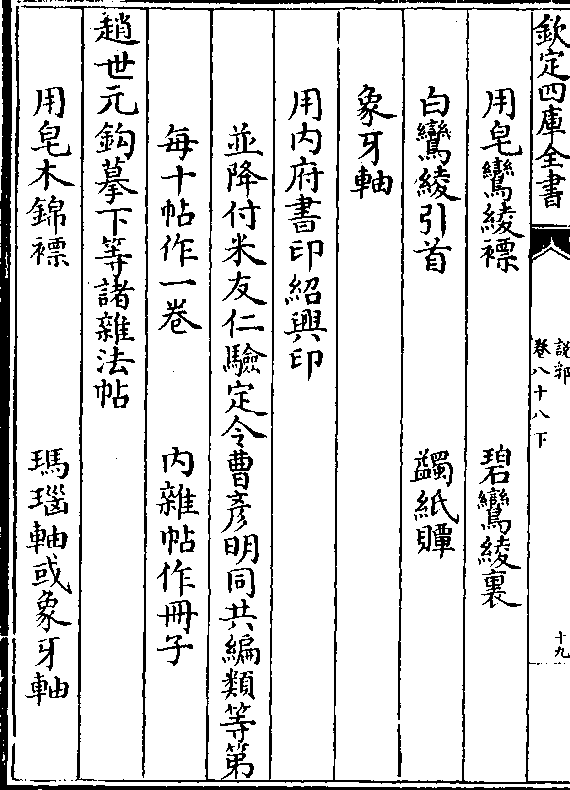 欽定四庫全書
說郛
卷八十八下
十九
用皂鸞綾褾 碧鸞綾裏
白鸞綾引首 蠲紙贉
象牙軸
用内府書印紹興印
並降付米友仁驗定令曹彦明同共編類等第
每十帖作一卷 内雜帖作冊子
趙世元鈎摹下等諸雜法帖
用皂木錦褾 瑪瑙軸或象牙軸